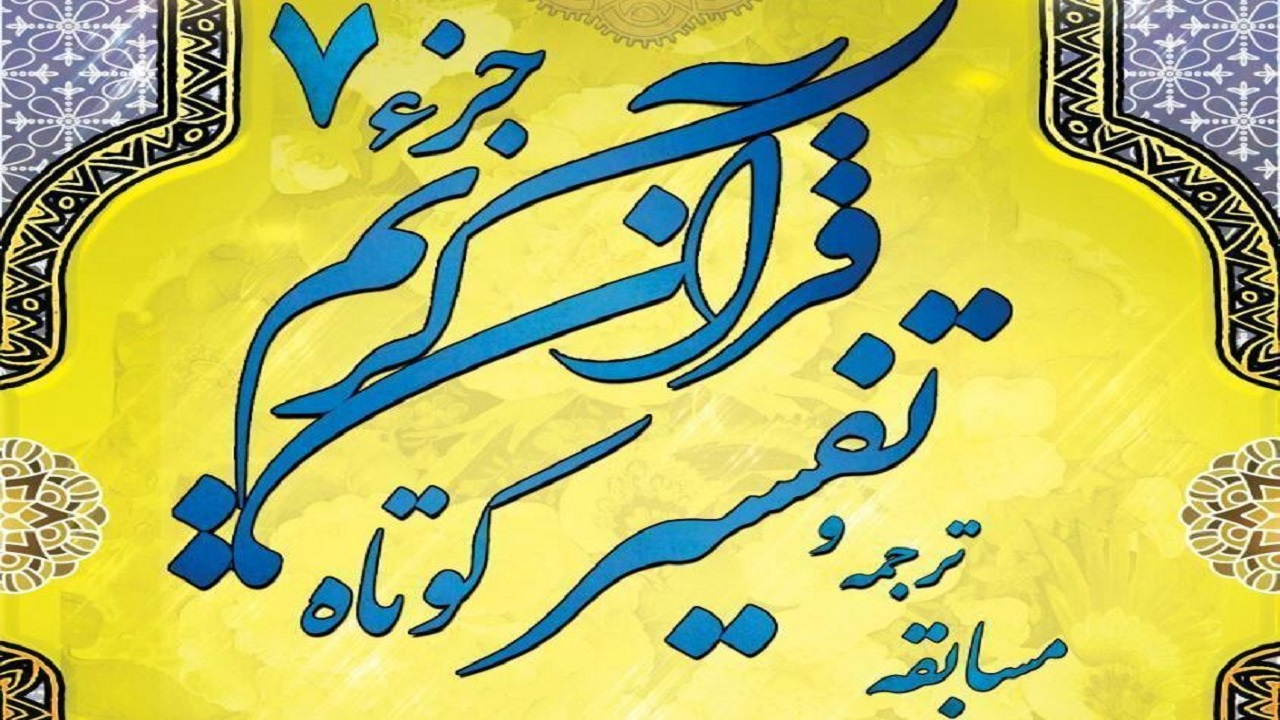 مسابقه
ترجمه و
تفسیر کوتاه
قرآن کریم
جزء ۷